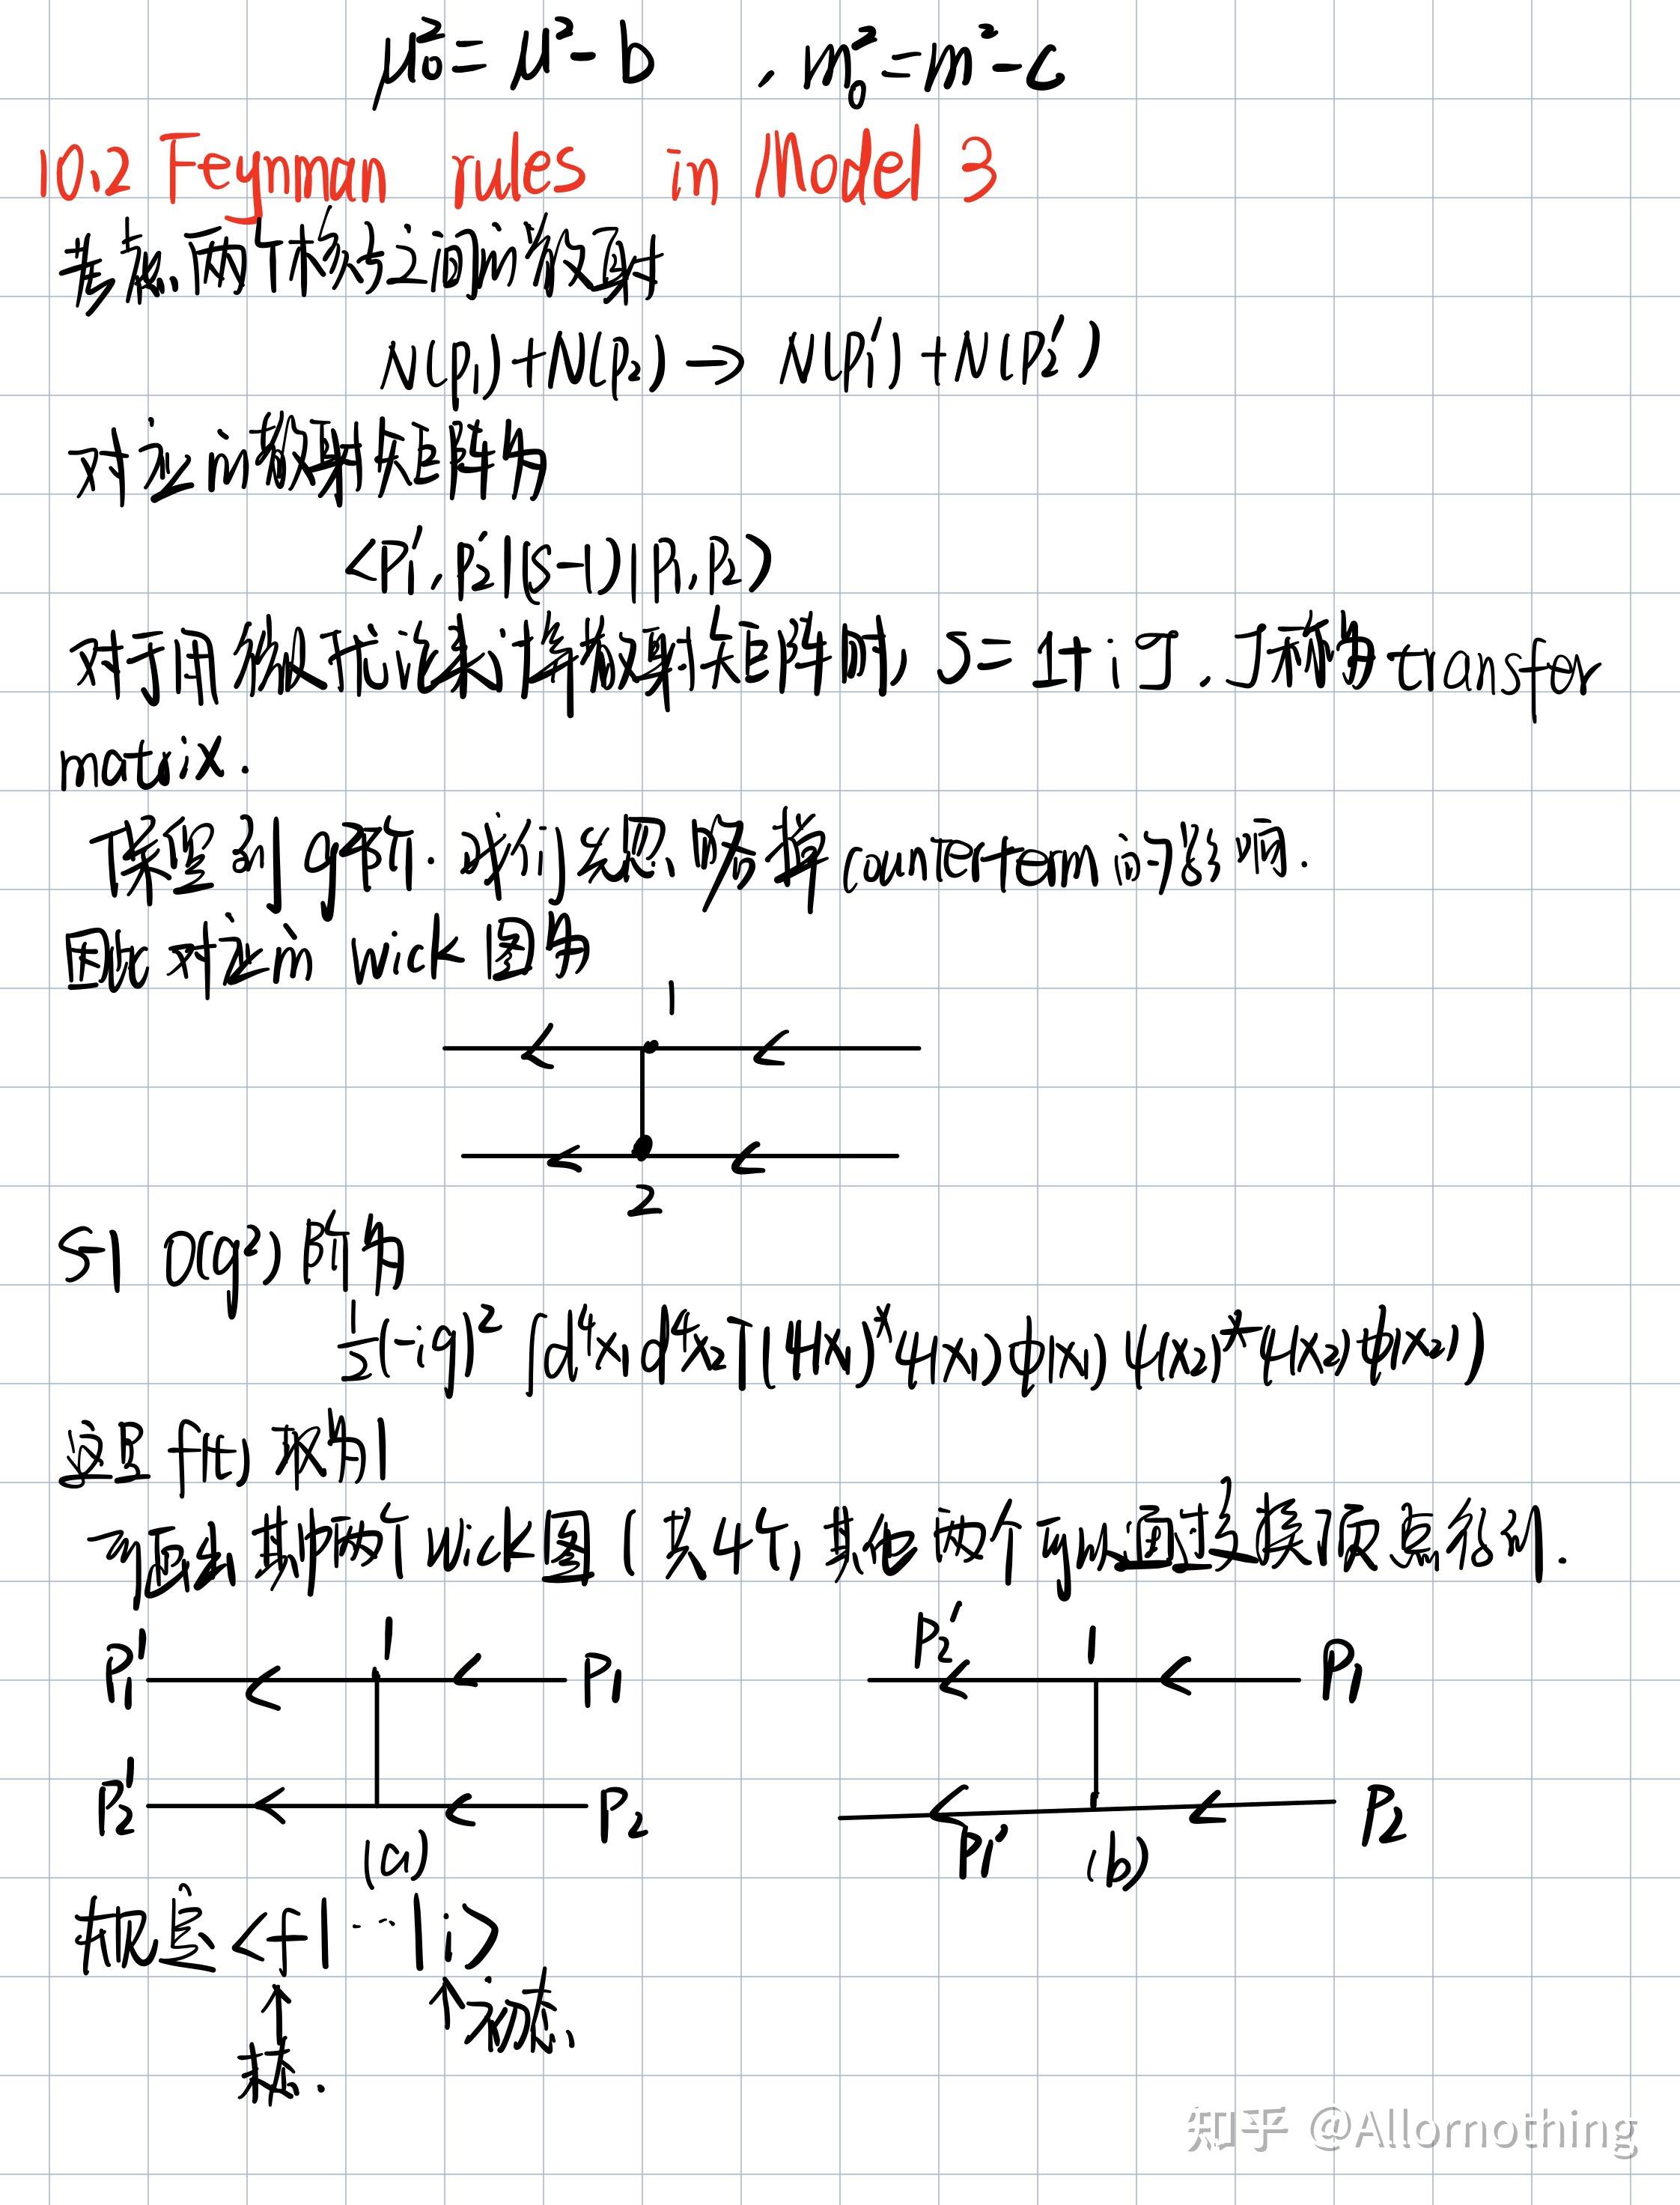 μ₀² = μ² - b , m₀² = m² - c
10.2 Feynman rules in Model 3
考虑两个核子之间的散射
N(p₁) + N(p₂) → N(p₁') + N(p₂')
对应的散射矩阵为
<p₁', p₂'|(S-1)|p₁, p₂>
对于用微扰论来计算散射矩阵时, S = 1 + iJ, J称为transfer
matrix.
保留到g²阶. 我们先忽略掉counterterm的影响.
因此对应的 wick 图为
1
2
S-1 O(g²) 阶为
½(-ig)² ∫d⁴x₁ d⁴x₂ T(ψ(x₁)* ψ(x₁) φ(x₁) ψ(x₂)* ψ(x₂) φ(x₂))
这里 f(t) 取为1
可画出其中两个Wick图 (共4个, 其他两个可以通过交换顶点得到.
p₁' 1 p₁ p₂' 1 p₁
p₂' p₂ p₁' p₂
(a) (b)
规定 <f|...|i>
↑ ↑初态
末态.
知乎 @Allornothing